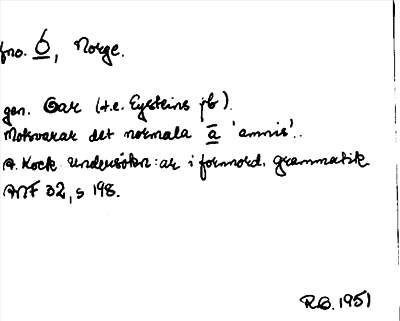 fno. Ó, Norge.
gen. Óar (t.e. Eysteins jb).
Motsvarar det normala á 'amnis'.
A. Kock undersökn:ar i fornnord. grammatik
ANF 32, s 198.
R.O. 1951